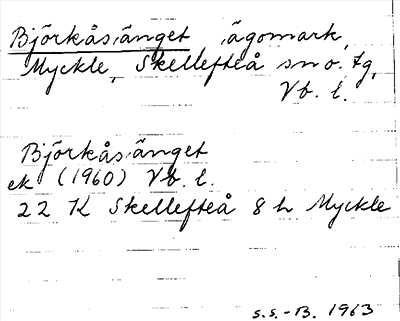 Björkåsänget, ägomark,
Myckle, Skellefteå sn o. tg,
Vb. l.
Björkåsänget
ek (1960) Vb. l.
22 K Skellefteå 8 h Myckle
s.s.-B. 1963